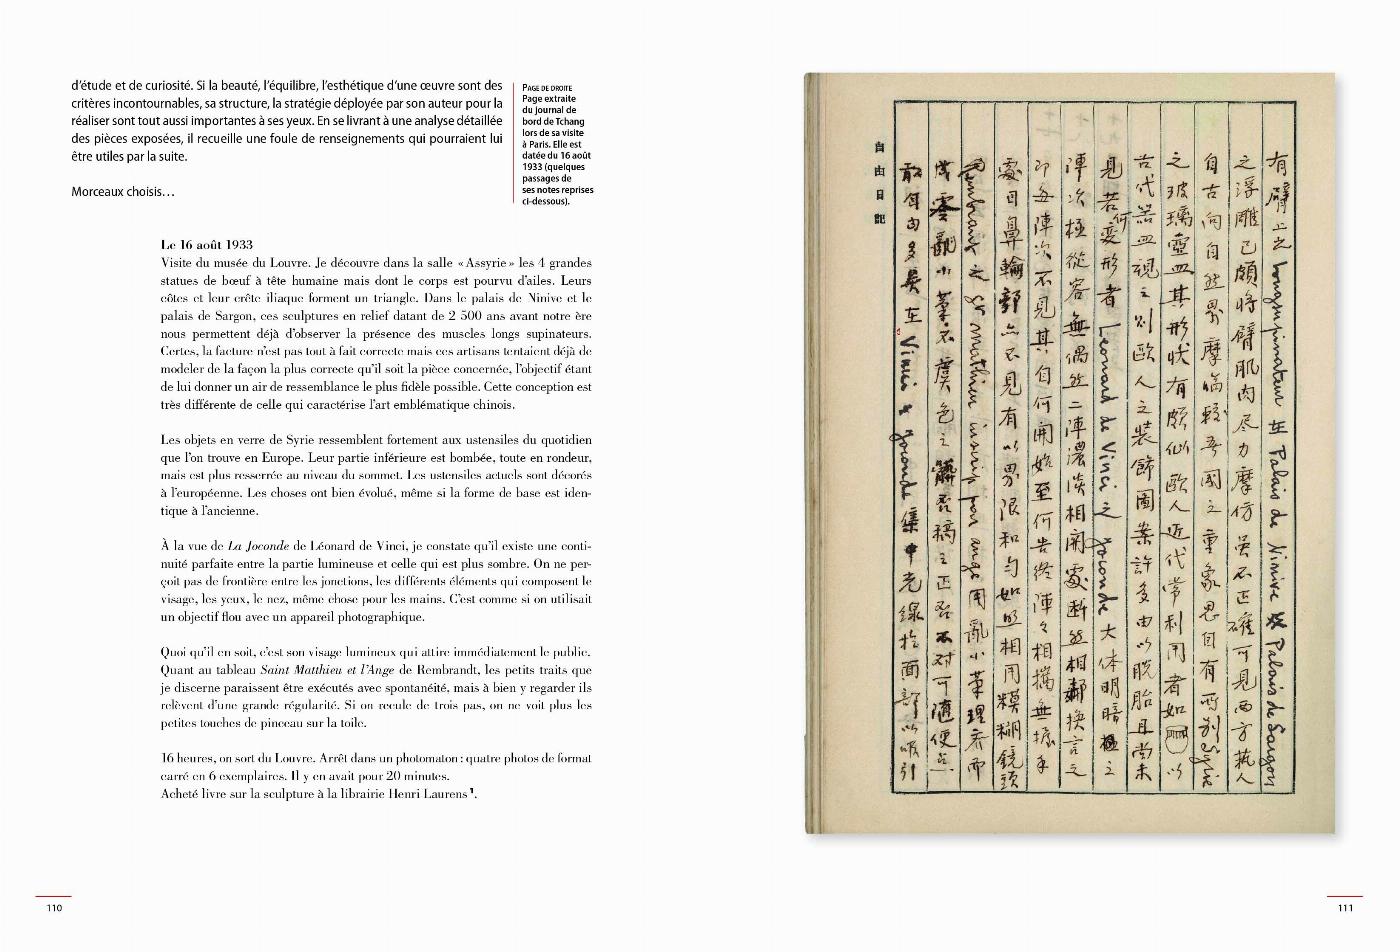 d'étude et de curiosité. Si la beauté, l'équilibre, l'esthétique d'une œuvre sont des
critères incontournables, sa structure, la stratégie déployée par son auteur pour la
réaliser sont tout aussi importantes à ses yeux. En se livrant à une analyse détaillée
des pièces exposées, il recueille une foule de renseignements qui pourraient lui
être utiles par la suite.
Morceaux choisis…
PAGE DE DROITE
Page extraite
du journal de
bord de Tchang
lors de sa visite
à Paris. Elle est
datée du 16 août
1933 (quelques
passages de
ses notes reprises
ci-dessous).
Le 16 août 1933
Visite du musée du Louvre. Je découvre dans la salle « Assyrie » les 4 grandes
statues de bœuf à tête humaine mais dont le corps est pourvu d'ailes. Leurs
côtes et leur crête iliaque forment un triangle. Dans le palais de Ninive et le
palais de Sargon, ces sculptures en relief datant de 2 500 ans avant notre ère
nous permettent déjà d'observer la présence des muscles longs supinateurs.
Certes, la facture n'est pas tout à fait correcte mais ces artisans tentaient déjà de
modeler de la façon la plus correcte qu'il soit la pièce concernée, l'objectif étant
de lui donner un air de ressemblance le plus fidèle possible. Cette conception est
très différente de celle qui caractérise l'art emblématique chinois.
Les objets en verre de Syrie ressemblent fortement aux ustensiles du quotidien
que l'on trouve en Europe. Leur partie inférieure est bombée, toute en rondeur,
mais est plus resserrée au niveau du sommet. Les ustensiles actuels sont décorés
à l'européenne. Les choses ont bien évolué, même si la forme de base est iden-
tique à l'ancienne.
À la vue de La Joconde de Léonard de Vinci, je constate qu'il existe une conti-
nuité parfaite entre la partie lumineuse et celle qui est plus sombre. On ne per-
çoit pas de frontière entre les jonctions, les différents éléments qui composent le
visage, les yeux, le nez, même chose pour les mains. C'est comme si on utilisait
un objectif flou avec un appareil photographique.
Quoi qu'il en soit, c'est son visage lumineux qui attire immédiatement le public.
Quant au tableau Saint Matthieu et l'Ange de Rembrandt, les petits traits que
je discerne paraissent être exécutés avec spontanéité, mais à bien y regarder ils
relèvent d'une grande régularité. Si on recule de trois pas, on ne voit plus les
petites touches de pinceau sur la toile.
16 heures, on sort du Louvre. Arrêt dans un photomaton : quatre photos de format
carré en 6 exemplaires. Il y en avait pour 20 minutes.
Acheté livre sur la sculpture à la librairie Henri Laurens¹.
110
有臂上之 longsupinateur 在 Palais de Ninive 及 Palais de Sargon
之浮雕已頗将臂肌肉尽力摩仿虽不正確可見西方執人
自古向自然界摩临較吾國之重象思自有所别 Syrie
之玻璃壺皿其形状有頗似歐人近代常利用者如 以
古代器皿視之則歐人之装飾圖案許多由以脱胎且尚未
見若何变形者 Leonard de Vinci 之 Joconde 大体明暗極之
陣次極從容無偶然二陣濃淡相開處断然相鄰換言之
即每陣次不見其自何開始至何告终陣々相攜無據手
處目鼻輪郭亦不見有以界限和勻如照相用糢糊鏡頭
Rembrant 之 St Mathieu inspiré par ange 用亂小筆理看而
成零亂小筆不虞色之髒否稿之正否不对可随便点
多矣在 Vinci 之 Joconde 集中光線於面部以吸引
自由日記
111